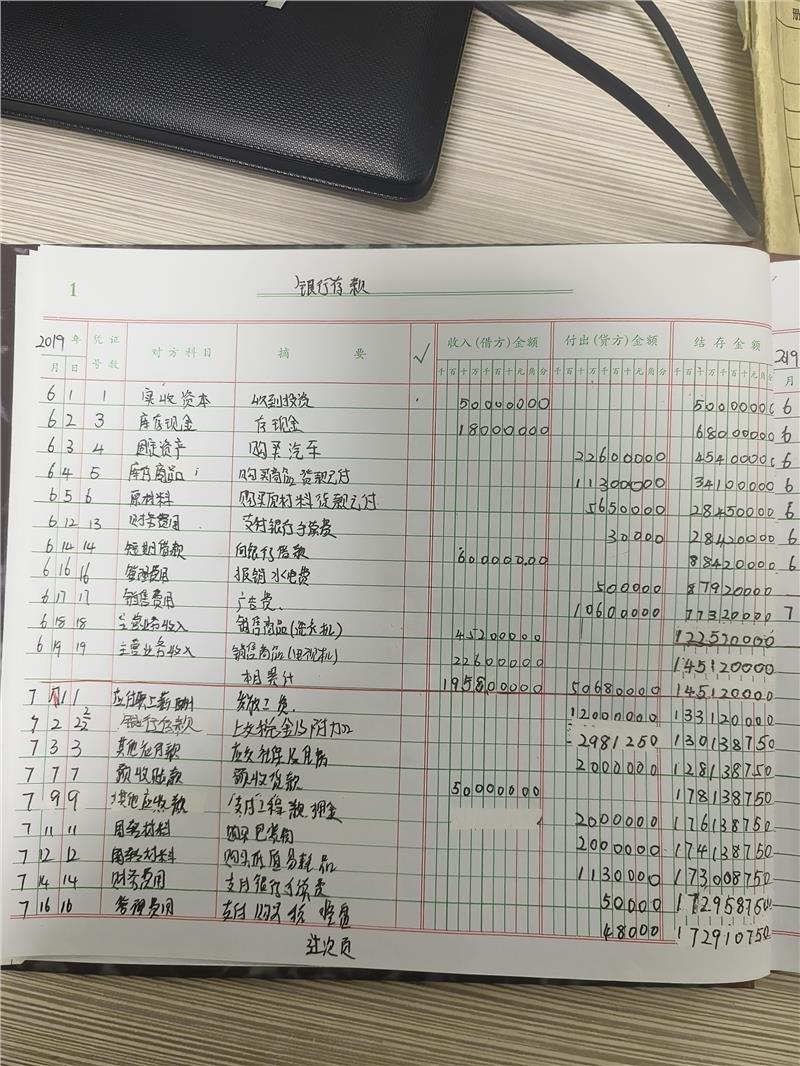 1 银行存款
2019年 凭证号数 对方科目 摘要 √ 收入(借方)金额 付出(贷方)金额 结存金额
月 日 千百十万千百十元角分 千百十万千百十元角分 千百十万千百十元角分
6 1 1 实收资本 收到投资 50000000 50000000
6 2 3 库存现金 存现金 18000000 68000000
6 3 4 固定资产 购买汽车 22600000 45400000
6 4 5 库存商品 购买商品货款已付 11300000 34100000
6 5 6 原材料 购买原材料货款已付 5650000 28450000
6 12 13 财务费用 支付银行手续费 30000 28420000
6 14 14 短期借款 向银行借款 60000000 88420000
6 16 16 管理费用 报销水电费 500000 87920000
6 17 17 销售费用 广告费 10600000 77320000
6 18 18 主营业务收入 销售商品(洗衣机) 45200000 122520000
6 19 19 主营业务收入 销售商品(电视机) 22600000 145120000
本月累计 195800000 50680000 145120000
7 1 1 应付职工薪酬 发放工资 12000000 133120000
7 2 2 银行存款 上交税金及附加 2981250 130138750
7 3 3 其他应付款 应交社保及 2000000 128138750
7 7 7 预收账款 预收货款 50000000 178138750
7 9 9 其他应收款 支付工程款押金 2000000 176138750
7 11 11 周转材料 购买包装物 2000000 174138750
7 12 12 周转材料 购买低值易耗品 1130000 173008750
7 14 14 财务费用 支付银行手续费 50000 172958750
7 16 16 管理费用 支付购买税控盘 48000 172910750
过次页